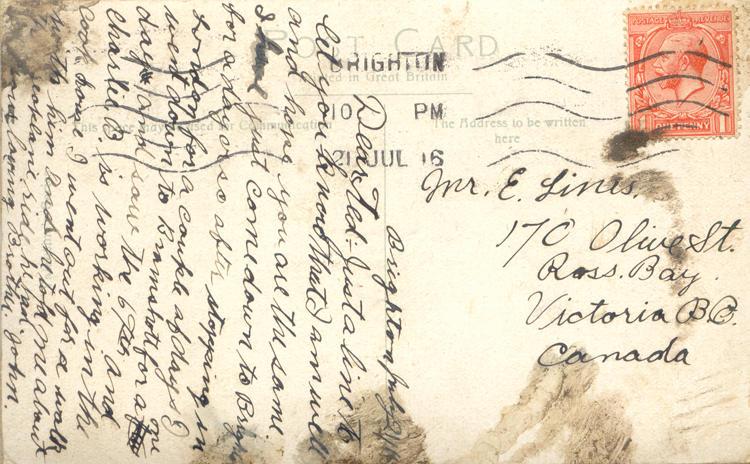 POST CARD
Printed in Great Britain
This space may be used for Communication
The Address to be written
here
BRIGHTON
10 PM
21 JUL 16
POSTAGE REVENUE
1 ONE PENNY 1
Mr. E. Lines,
170 Olive St.
Ross. Bay.
Victoria B.C.
Canada
Brighton July 21/16
Dear Ted:- Just a line to
let you know that I am well
and hope you are the same
I have just come down to Brighton
for a day or so after stopping in
London for a couple of days I
went down to Bramshott for a
day and saw the 67th and one
Charlie B. is working in the
I went out for a walk
with him and he took me aboard
Your loving Brother John.